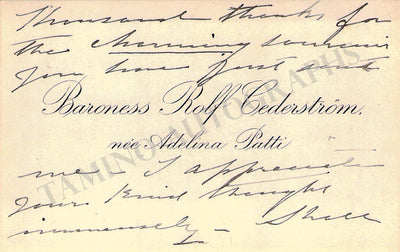 Thousand thanks for
the charming souvenir
you have just sent
Baroness Rolf Cederström.
née Adelina Patti
me - I appreciate
your kind thought
immensely - Shall
TAMINO AUTOGRAPHS